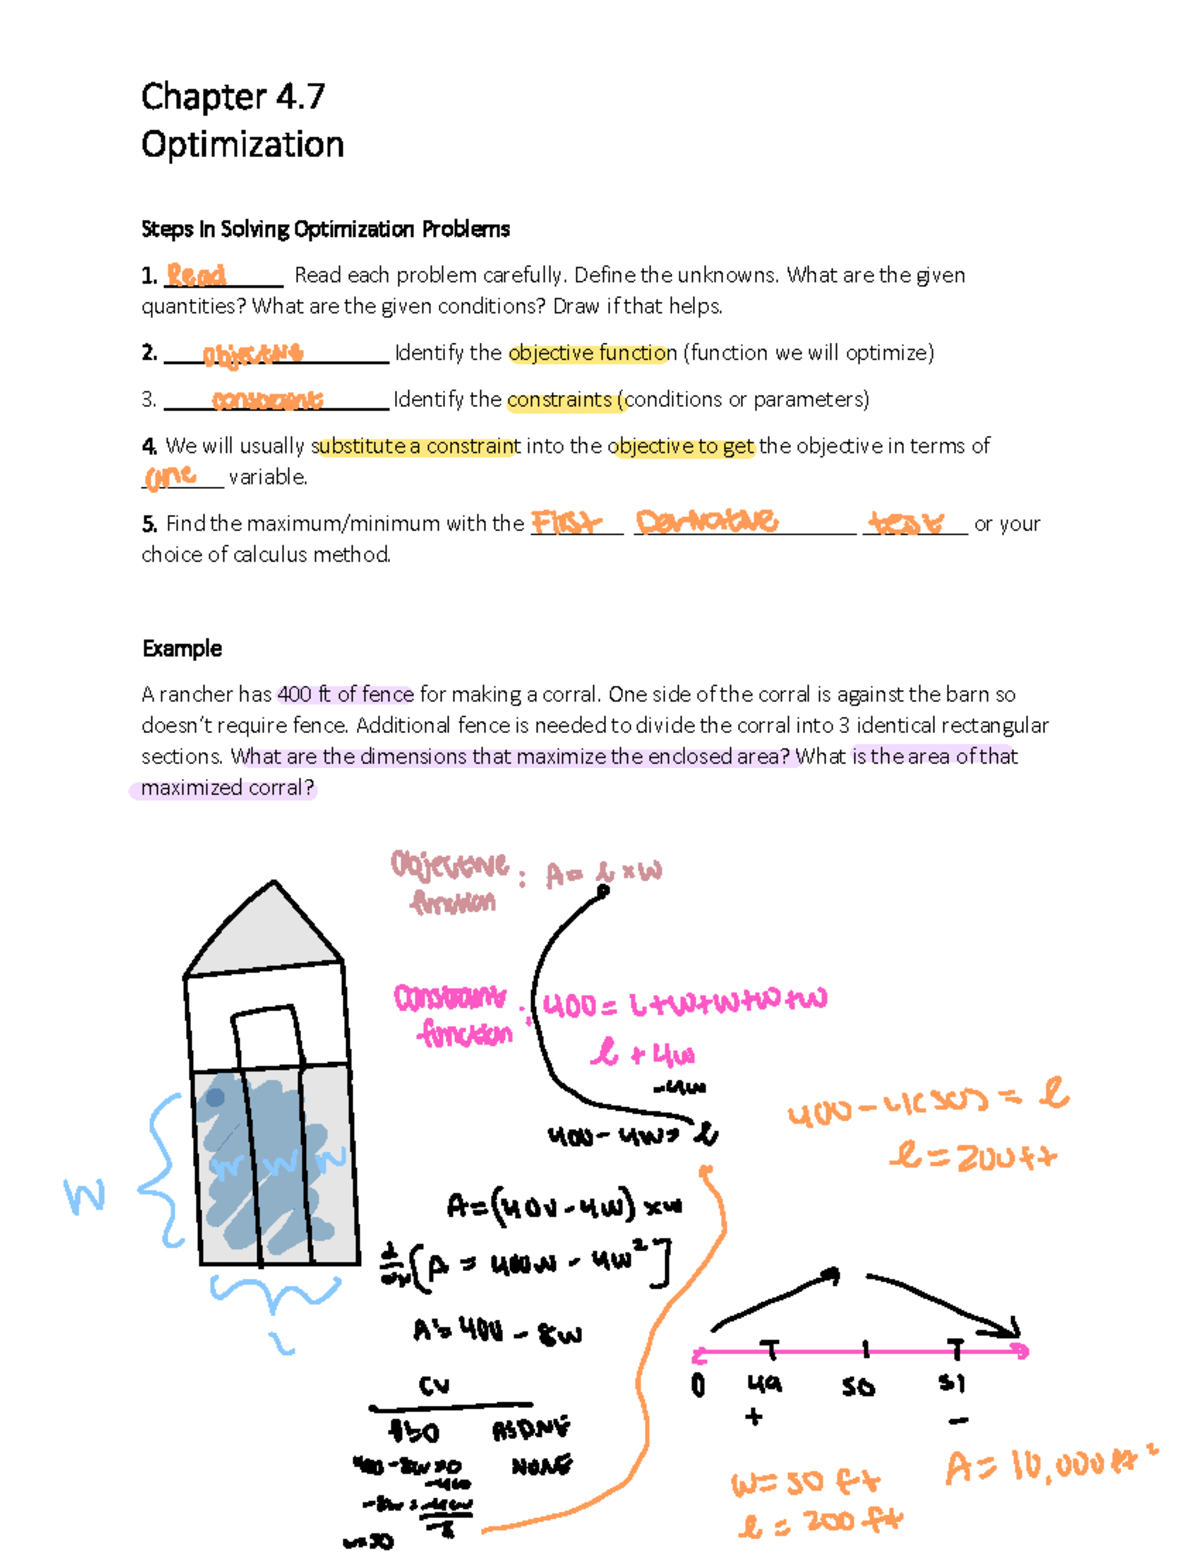 Chapter 4.7
Optimization
Steps In Solving Optimization Problems
1. Read Read each problem carefully. Define the unknowns. What are the given
quantities? What are the given conditions? Draw if that helps.
2. objective Identify the objective function (function we will optimize)
3. constraints Identify the constraints (conditions or parameters)
4. We will usually substitute a constraint into the objective to get the objective in terms of
one variable.
5. Find the maximum/minimum with the First Derivative test or your
choice of calculus method.
Example
A rancher has 400 ft of fence for making a corral. One side of the corral is against the barn so
doesn't require fence. Additional fence is needed to divide the corral into 3 identical rectangular
sections. What are the dimensions that maximize the enclosed area? What is the area of that
maximized corral?
Objective function : A = l × w
Constraint function : 400 = l+w+w+w+w
l + 4w
-4w
400 - 4w = l
400 - 4(50) = l
l = 200 ft
w w w
w
l
A = (400 - 4w) × w
[A = 400w - 4w²]
A' = 400 - 8w
CV
A'=0 A'DNE
400 - 8w = 0 NONE
-400
-8w = -400
-8
w = 50
0 49 50 51
+ -
w = 50 ft
l = 200 ft
A = 10,000 ft²